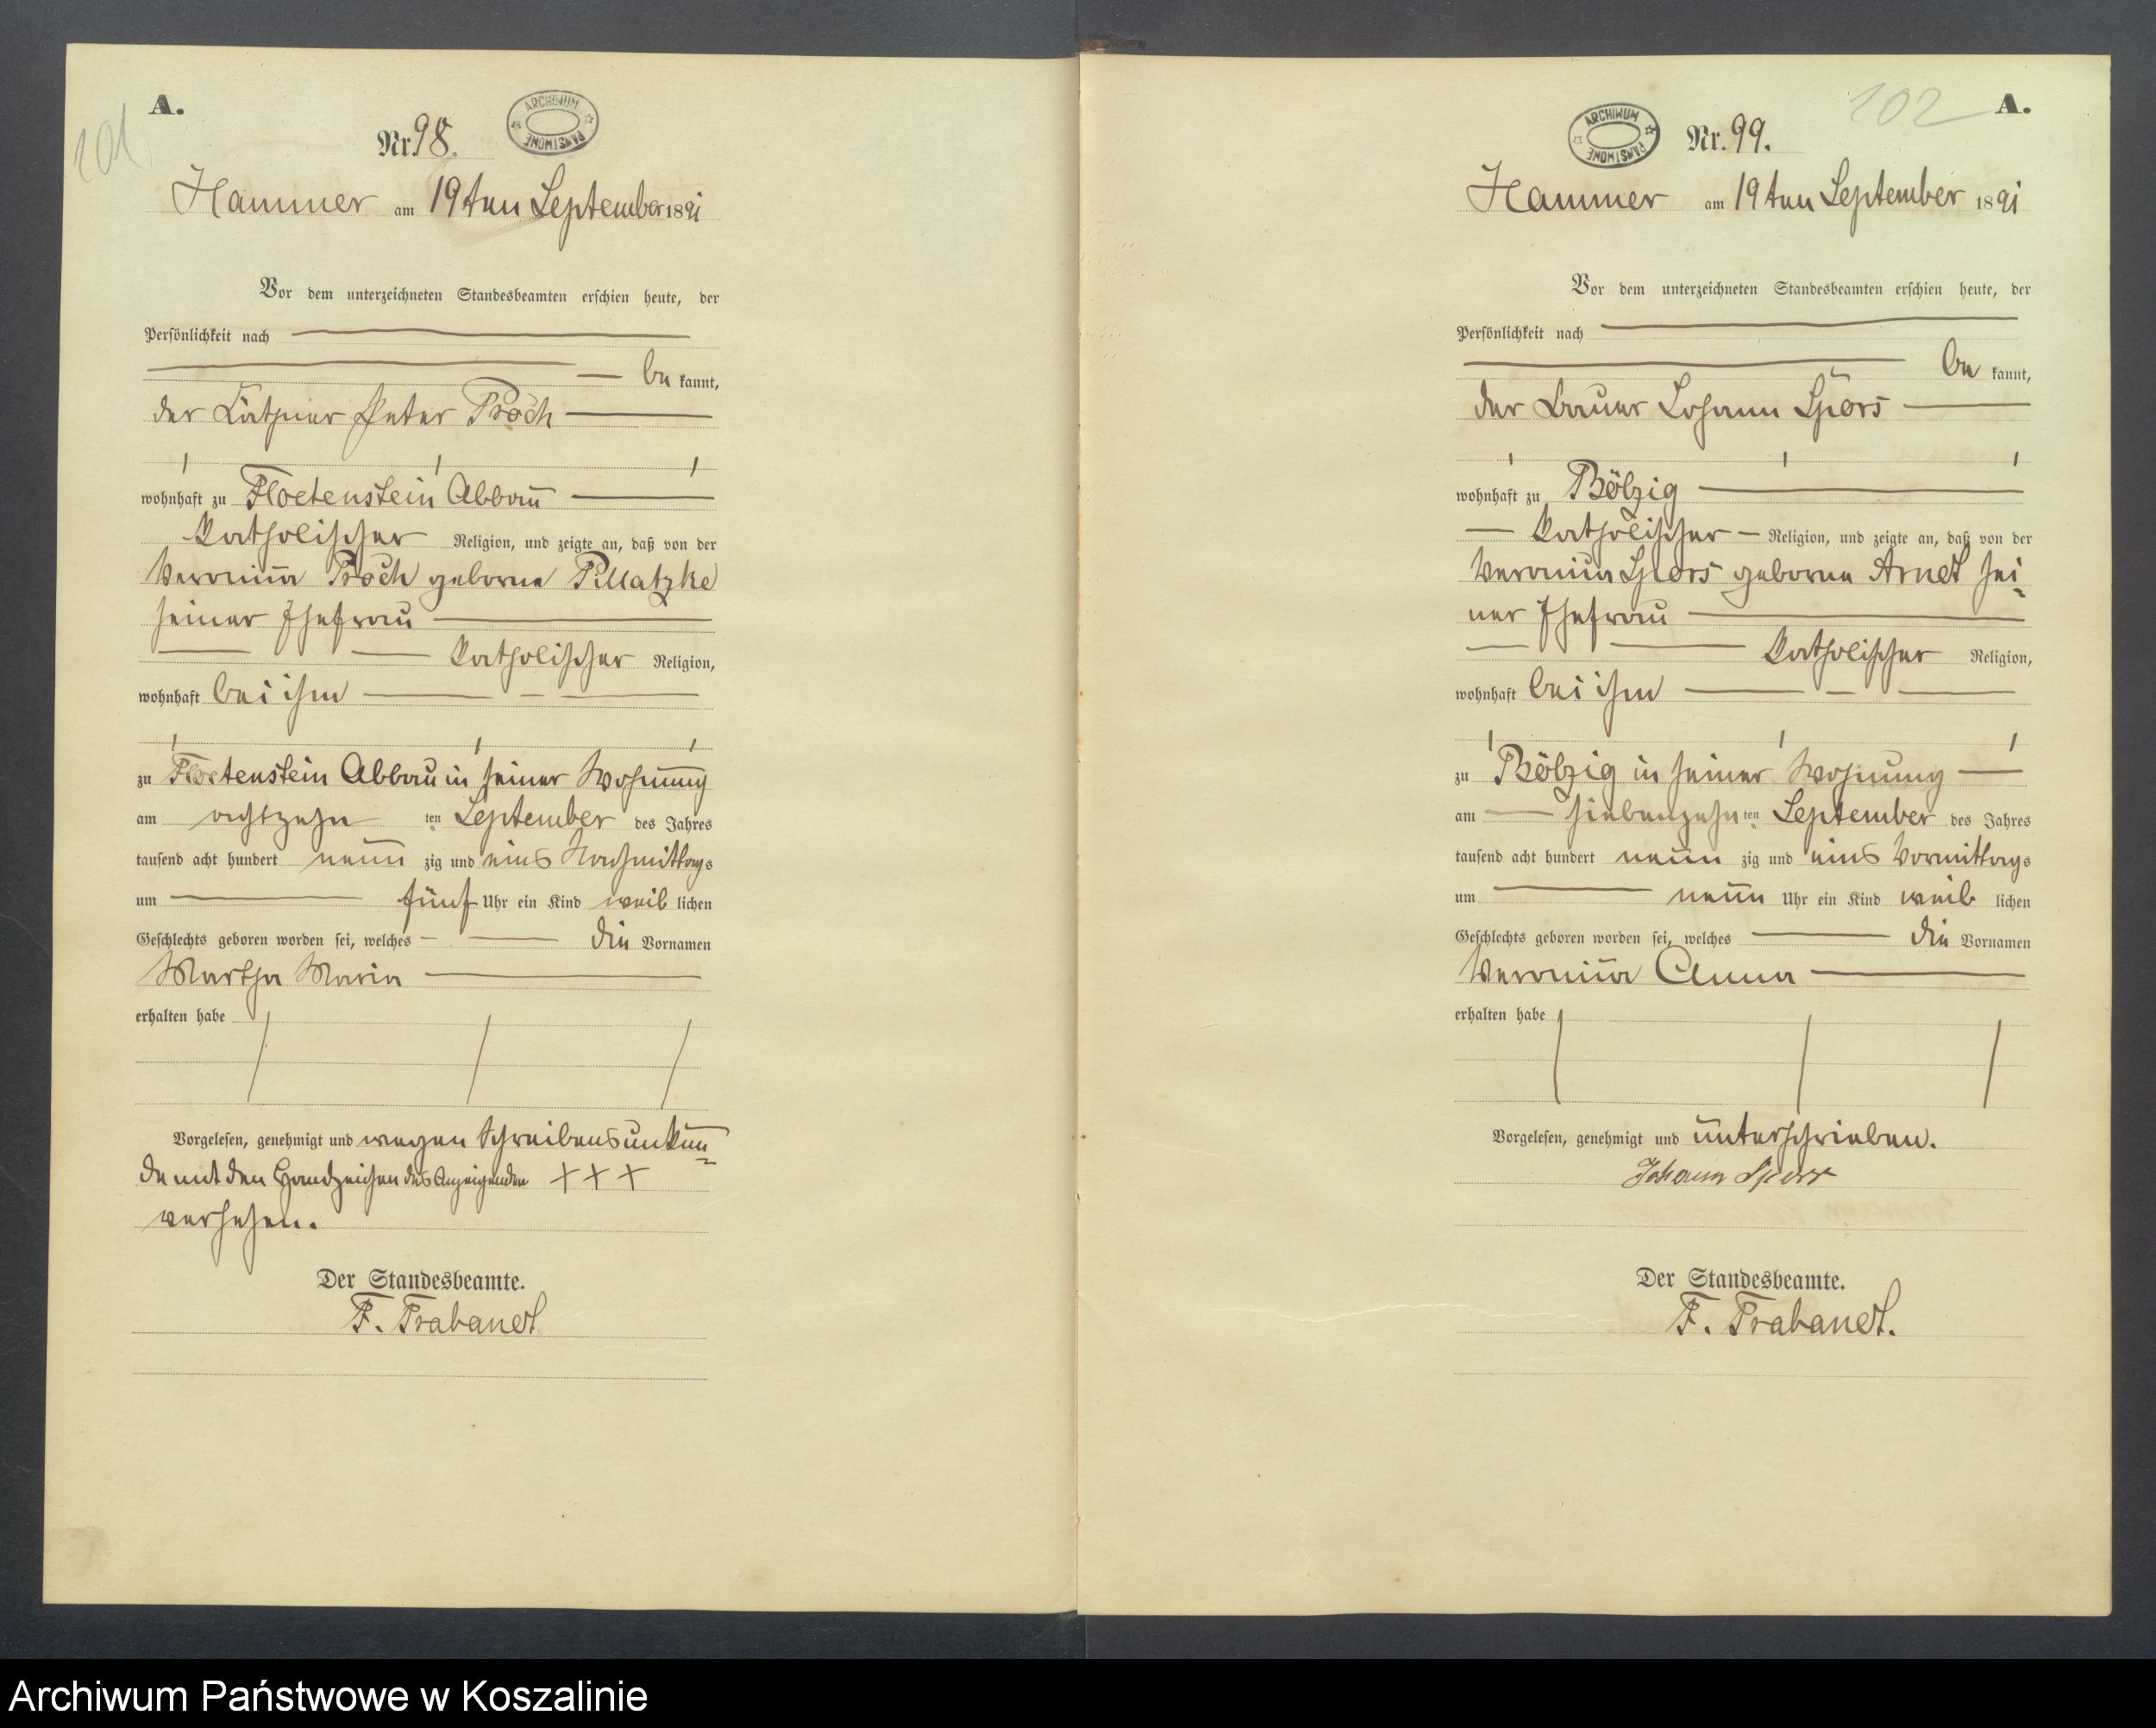 101
A.
ARCHIWUM PAŃSTWOWE
Nr. 98.
Hammer am 19ten September 1891
Vor dem unterzeichneten Standesbeamten erschien heute, der
Persönlichkeit nach
be kannt,
der Käthner Peter Proch
wohnhaft zu Floetenstein Abbau
katholischer Religion, und zeigte an, daß von der
Veronika Proch geborne Pillatzke
seiner Ehefrau
katholischer Religion,
wohnhaft bei ihm
zu Floetenstein Abbau in seiner Wohnung
am achtzehn ten September des Jahres
tausend acht hundert neun zig und eins Nachmittags
um fünf Uhr ein Kind weib lichen
Geschlechts geboren worden sei, welches die Vornamen
Martha Maria
erhalten habe
Vorgelesen, genehmigt und wegen Schreibensunkun-
de mit den Handzeichen des Anzeigenden +++
versehen.
Der Standesbeamte.
F. Trabandt
102
A.
ARCHIWUM PAŃSTWOWE
Nr. 99.
Hammer am 19ten September 1891
Vor dem unterzeichneten Standesbeamten erschien heute, der
Persönlichkeit nach
be kannt,
der Bauer Johann Spors
wohnhaft zu Bölzig
katholischer Religion, und zeigte an, daß von der
Veronika Spors geborne Arndt sei-
ner Ehefrau
katholischer Religion,
wohnhaft bei ihm
zu Bölzig in seiner Wohnung
am siebenzehn ten September des Jahres
tausend acht hundert neun zig und eins Vormittags
um neun Uhr ein Kind weib lichen
Geschlechts geboren worden sei, welches die Vornamen
Veronika Anna
erhalten habe
Vorgelesen, genehmigt und unterschrieben.
Johann Spors
Der Standesbeamte.
F. Trabandt.
Archiwum Państwowe w Koszalinie